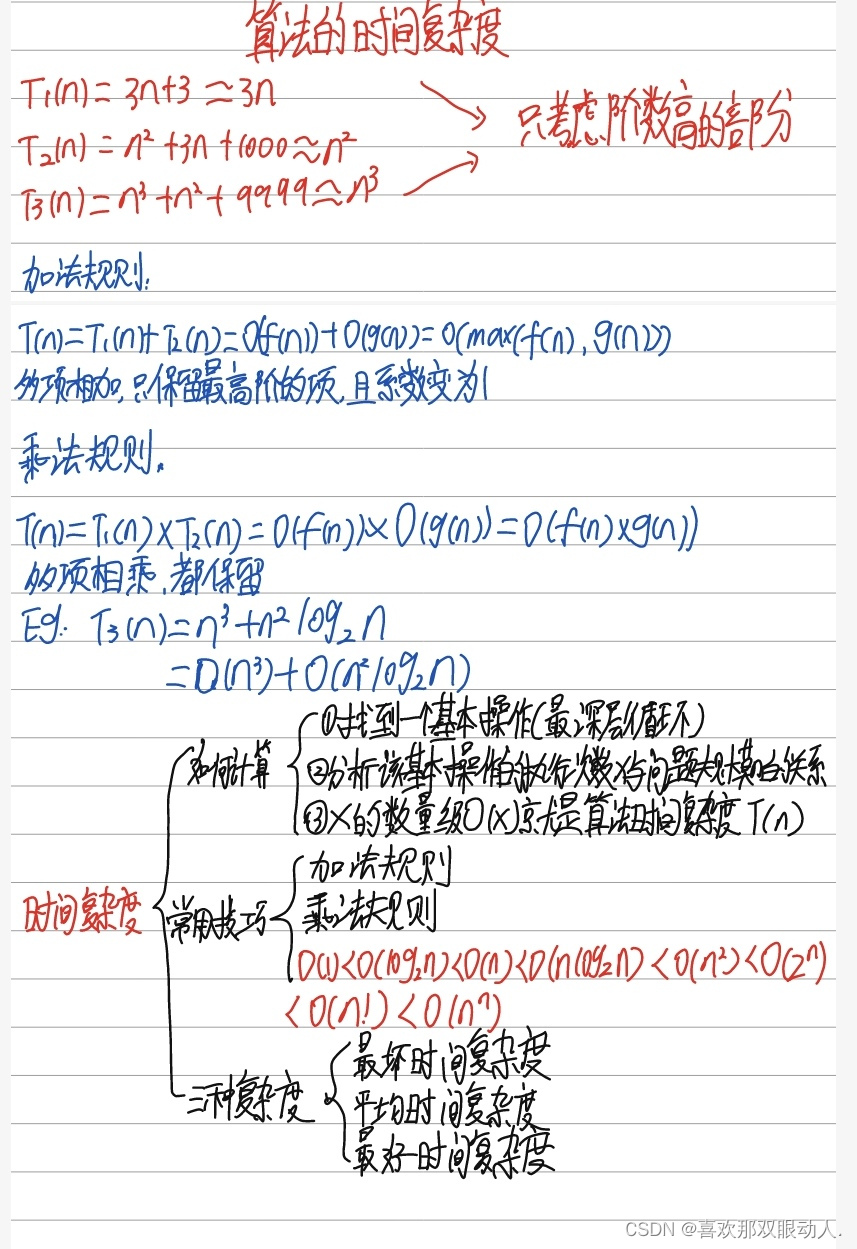 算法的时间复杂度
T₁(n) = 3n+3 ≈3n
T₂(n) = n² +3n +1000≈n²
T₃(n) = n³ +n² + 9999≈n³
只考虑阶数高的部分
加法规则:
T(n)=T₁(n)+T₂(n)=O(f(n))+O(g(n))=O(max(f(n), g(n)))
多项相加,只保留最高阶的项,且系数变为1
乘法规则.
T(n)=T₁(n)×T₂(n)=O(f(n))×O(g(n))=O(f(n)×g(n))
多项相乘,都保留
Eg: T₃(n)=n³+n²log₂n
=O(n³)+O(n²log₂n)
时间复杂度
如何计算
①找到一个基本操作(最深层循环)
②分析该基本操作的执行次数x与问题规模n的关系
③x的数量级O(x)就是算法时间复杂度T(n)
常用技巧
加法规则
乘法规则
O(1)<O(log₂n)<O(n)<O(nlog₂n)<O(n²)<O(2ⁿ)
<O(n!)<O(nⁿ)
三种复杂度
最坏时间复杂度
平均时间复杂度
最好时间复杂度
CSDN @喜欢那双眼动人.